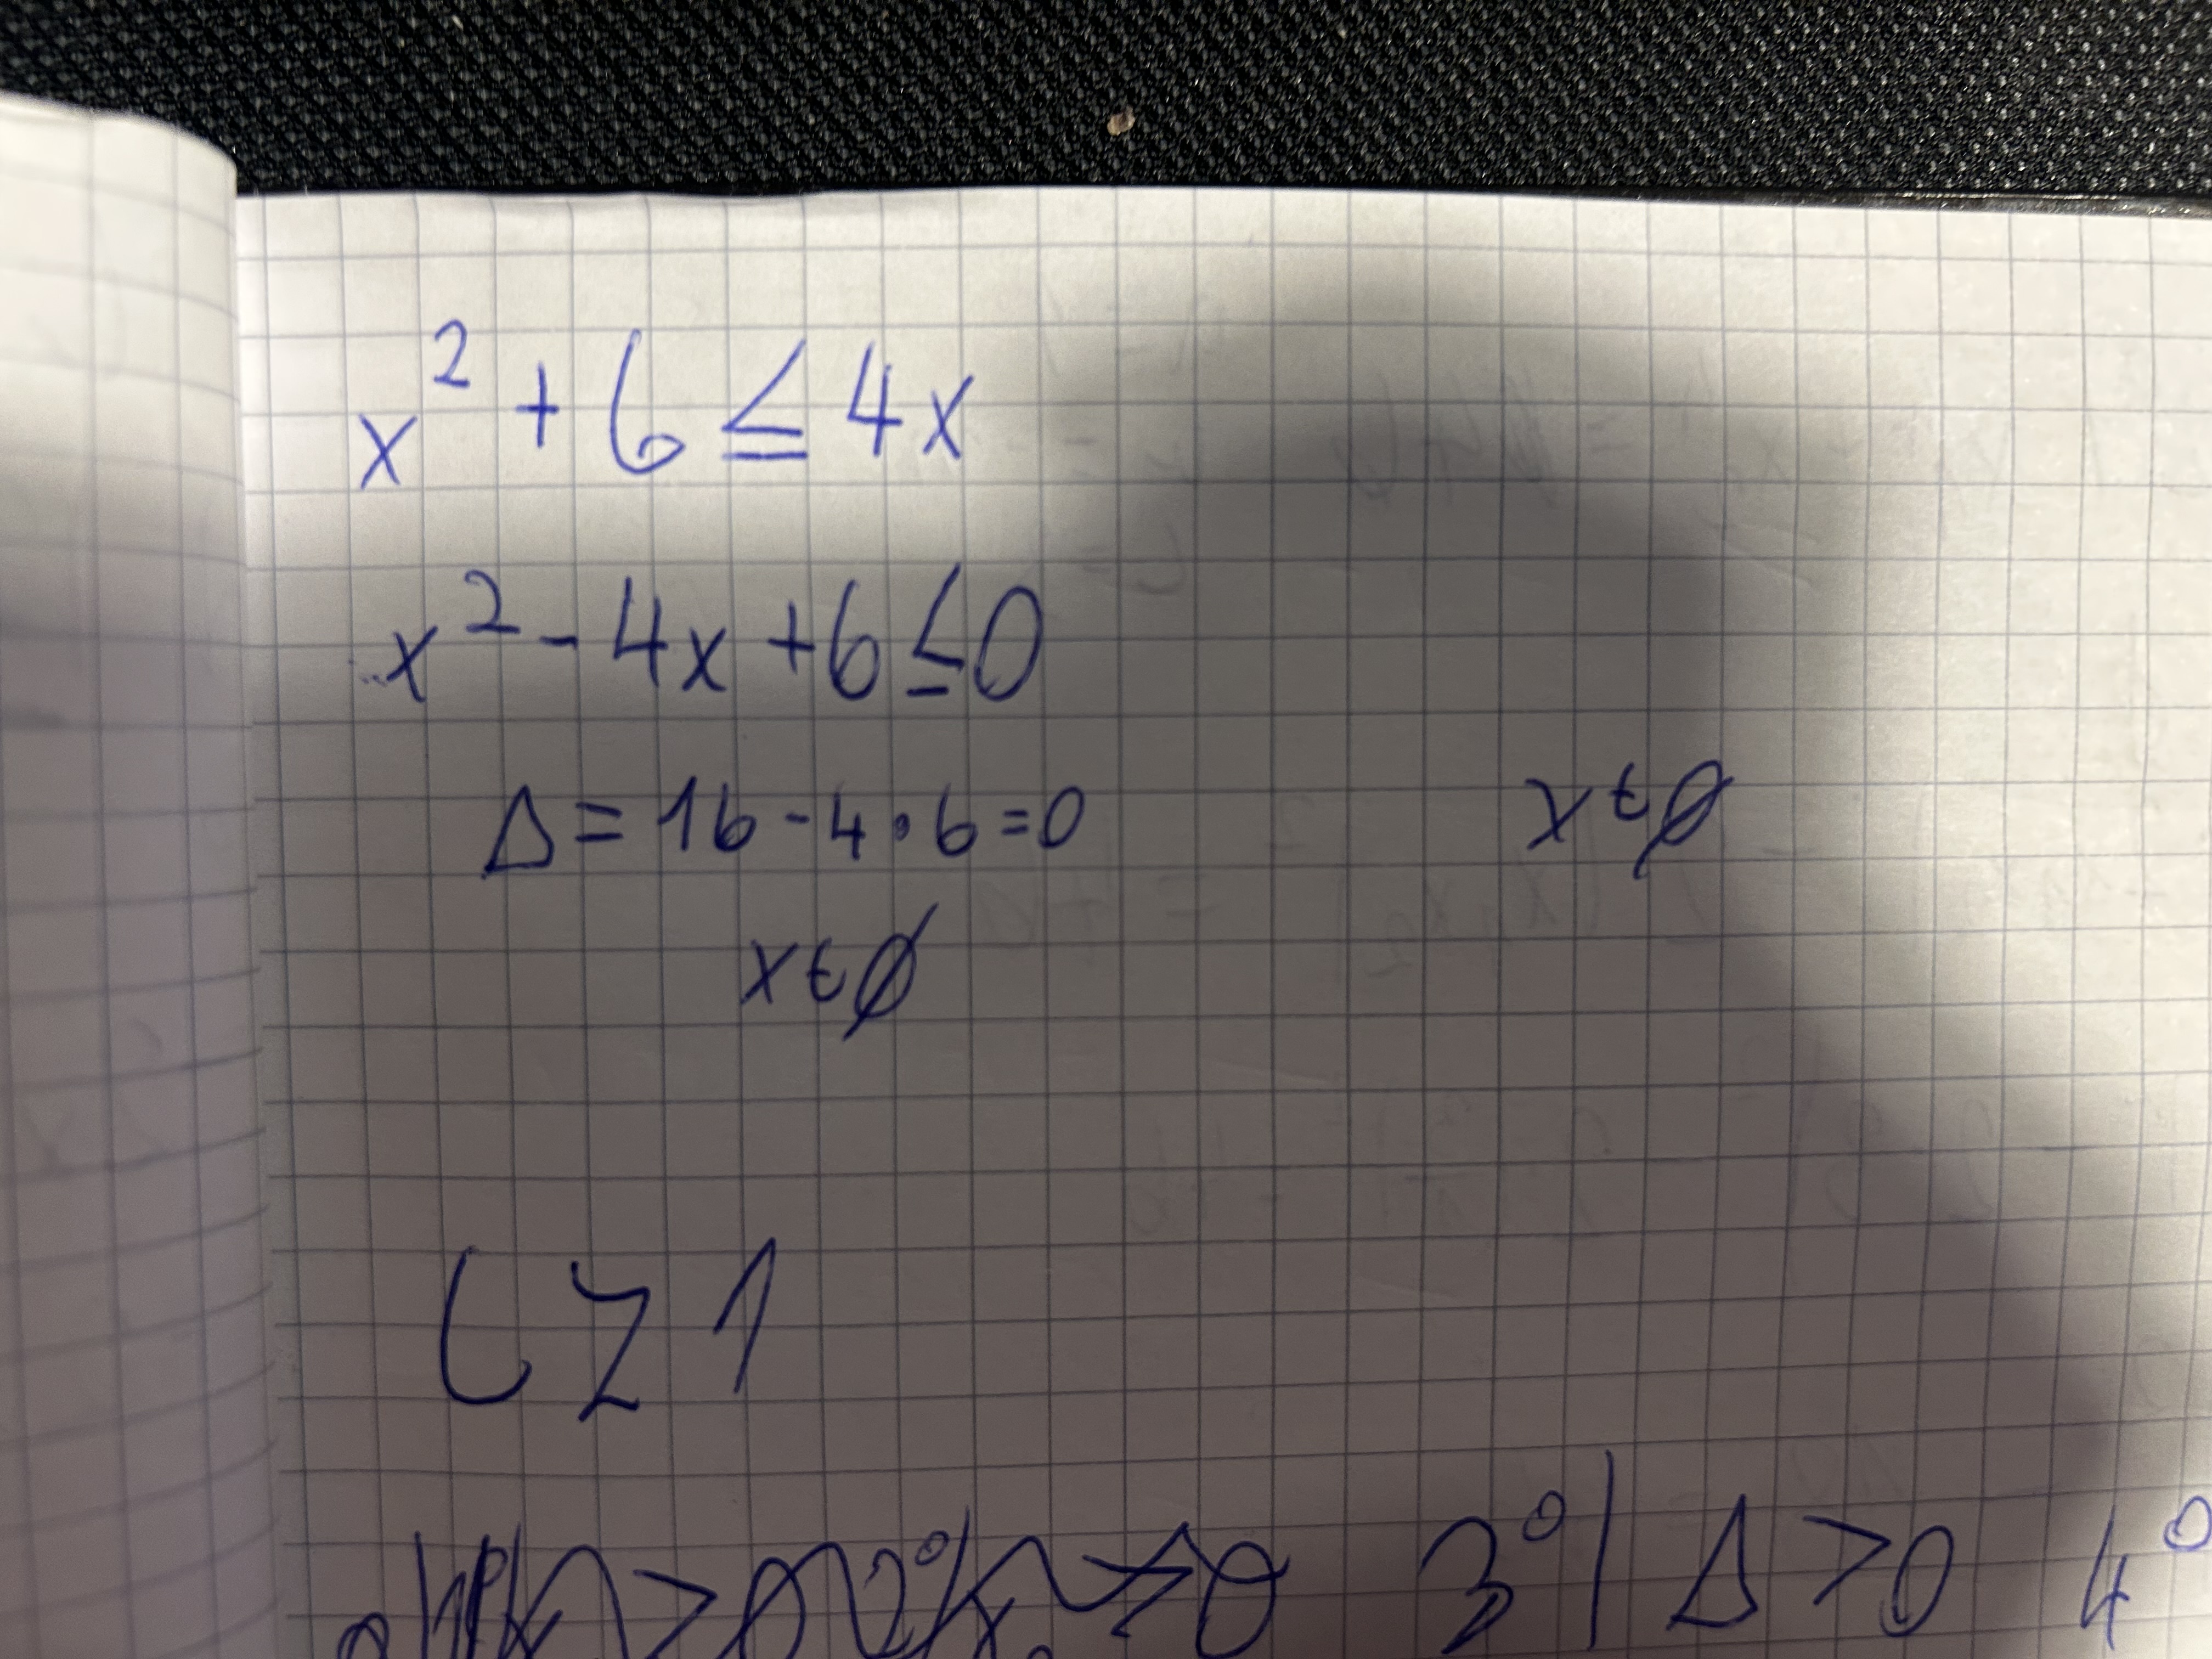 x² + 6 ≤ 4x
x² - 4x + 6 ≤ 0
Δ = 16 - 4 · 6 = 0
x ∈ ∅
x ∈ ∅
3°| Δ > 0 4°